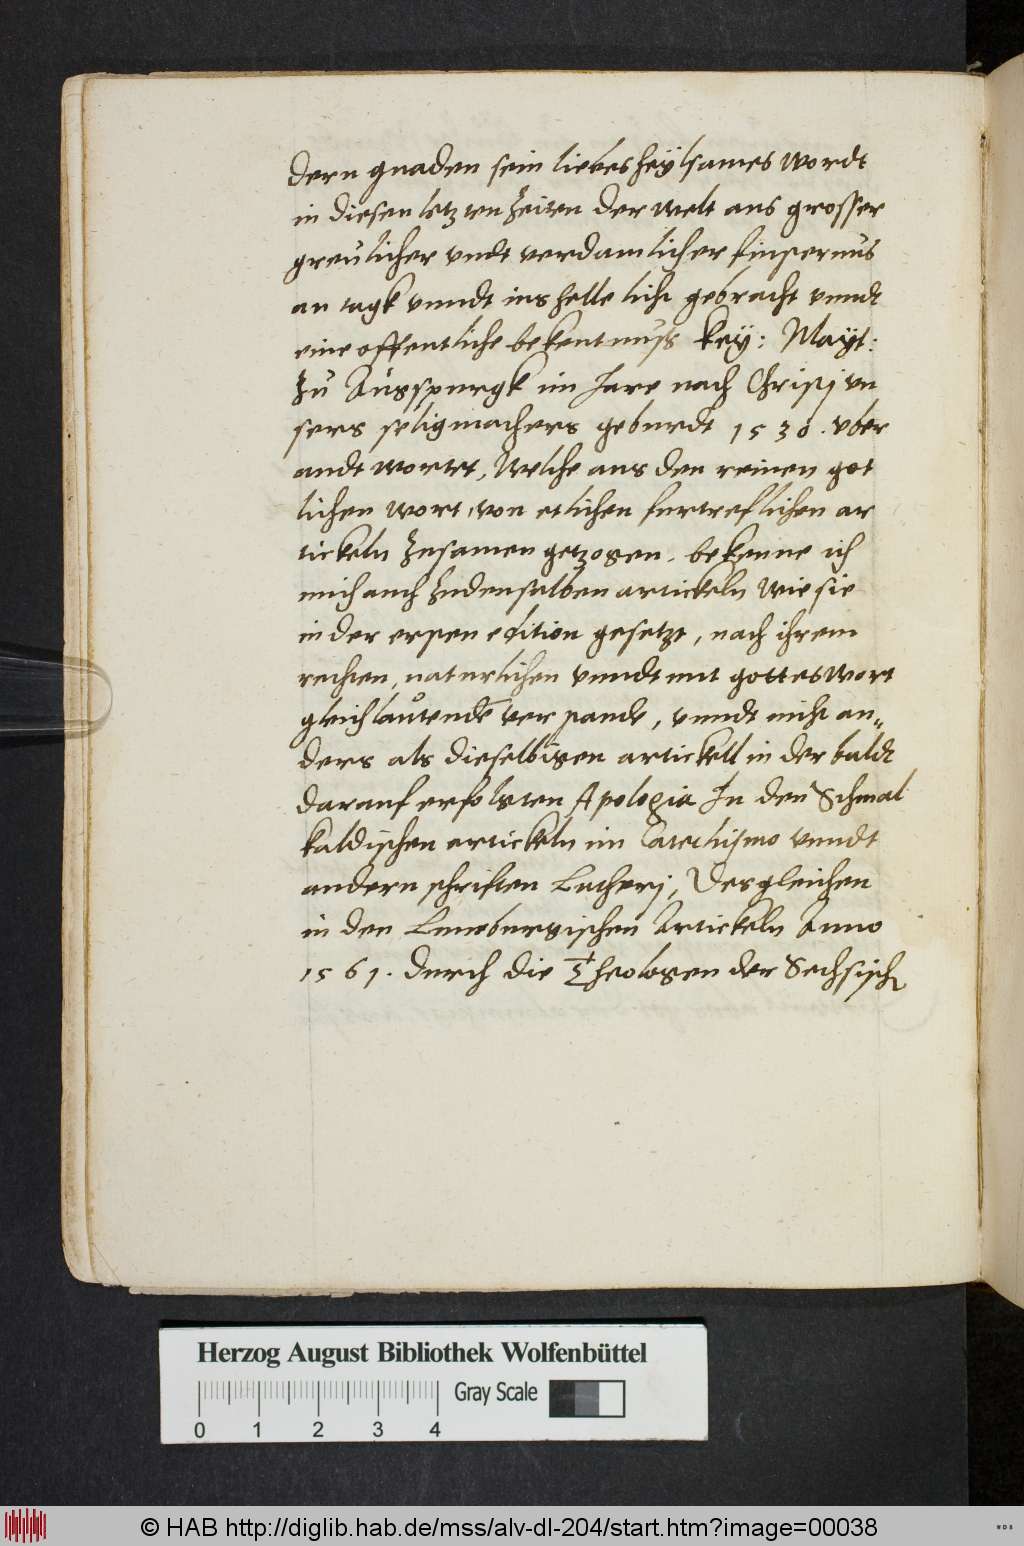 dern gnaden sein liebes heÿlsames wordt
in diesen letzten Zeiten der welt aus grosser
greulicher vndt verdamlicher finsternus
an tagk vnndt ins helle licht gebracht vnndt
eine offentliche bekentnuss key: Mayt:
Zu Ausspurgk im Jare nach Christj vn
sers seligmachers geburdt 1530. vber
andt wortet, Welche aus den reinen got
lichen wort, von etlichen furtreflichen ar
tickeln Zusamen getzogen, bekenne ich
mich auch Zu denselben artickeln wie sie
in der ersten edition gesetzt, nach ihrem
rechten, naturlichen vnndt mit gottes wort
gleichlautendē verstande, vnndt nicht an„
ders als dieselbigen artickell in der baldt
darauf erfolgten Apologia In den Schmal
kaldischen artickeln im Catechismo vnndt
andern schriften Lutherj, Desgleichen
in den Luneburgischen Artickeln Anno
1561. durch die Theologen der Sechsisch
Herzog August Bibliothek Wolfenbüttel
Gray Scale
0 1 2 3 4
© HAB http://diglib.hab.de/mss/alv-dl-204/start.htm?image=00038